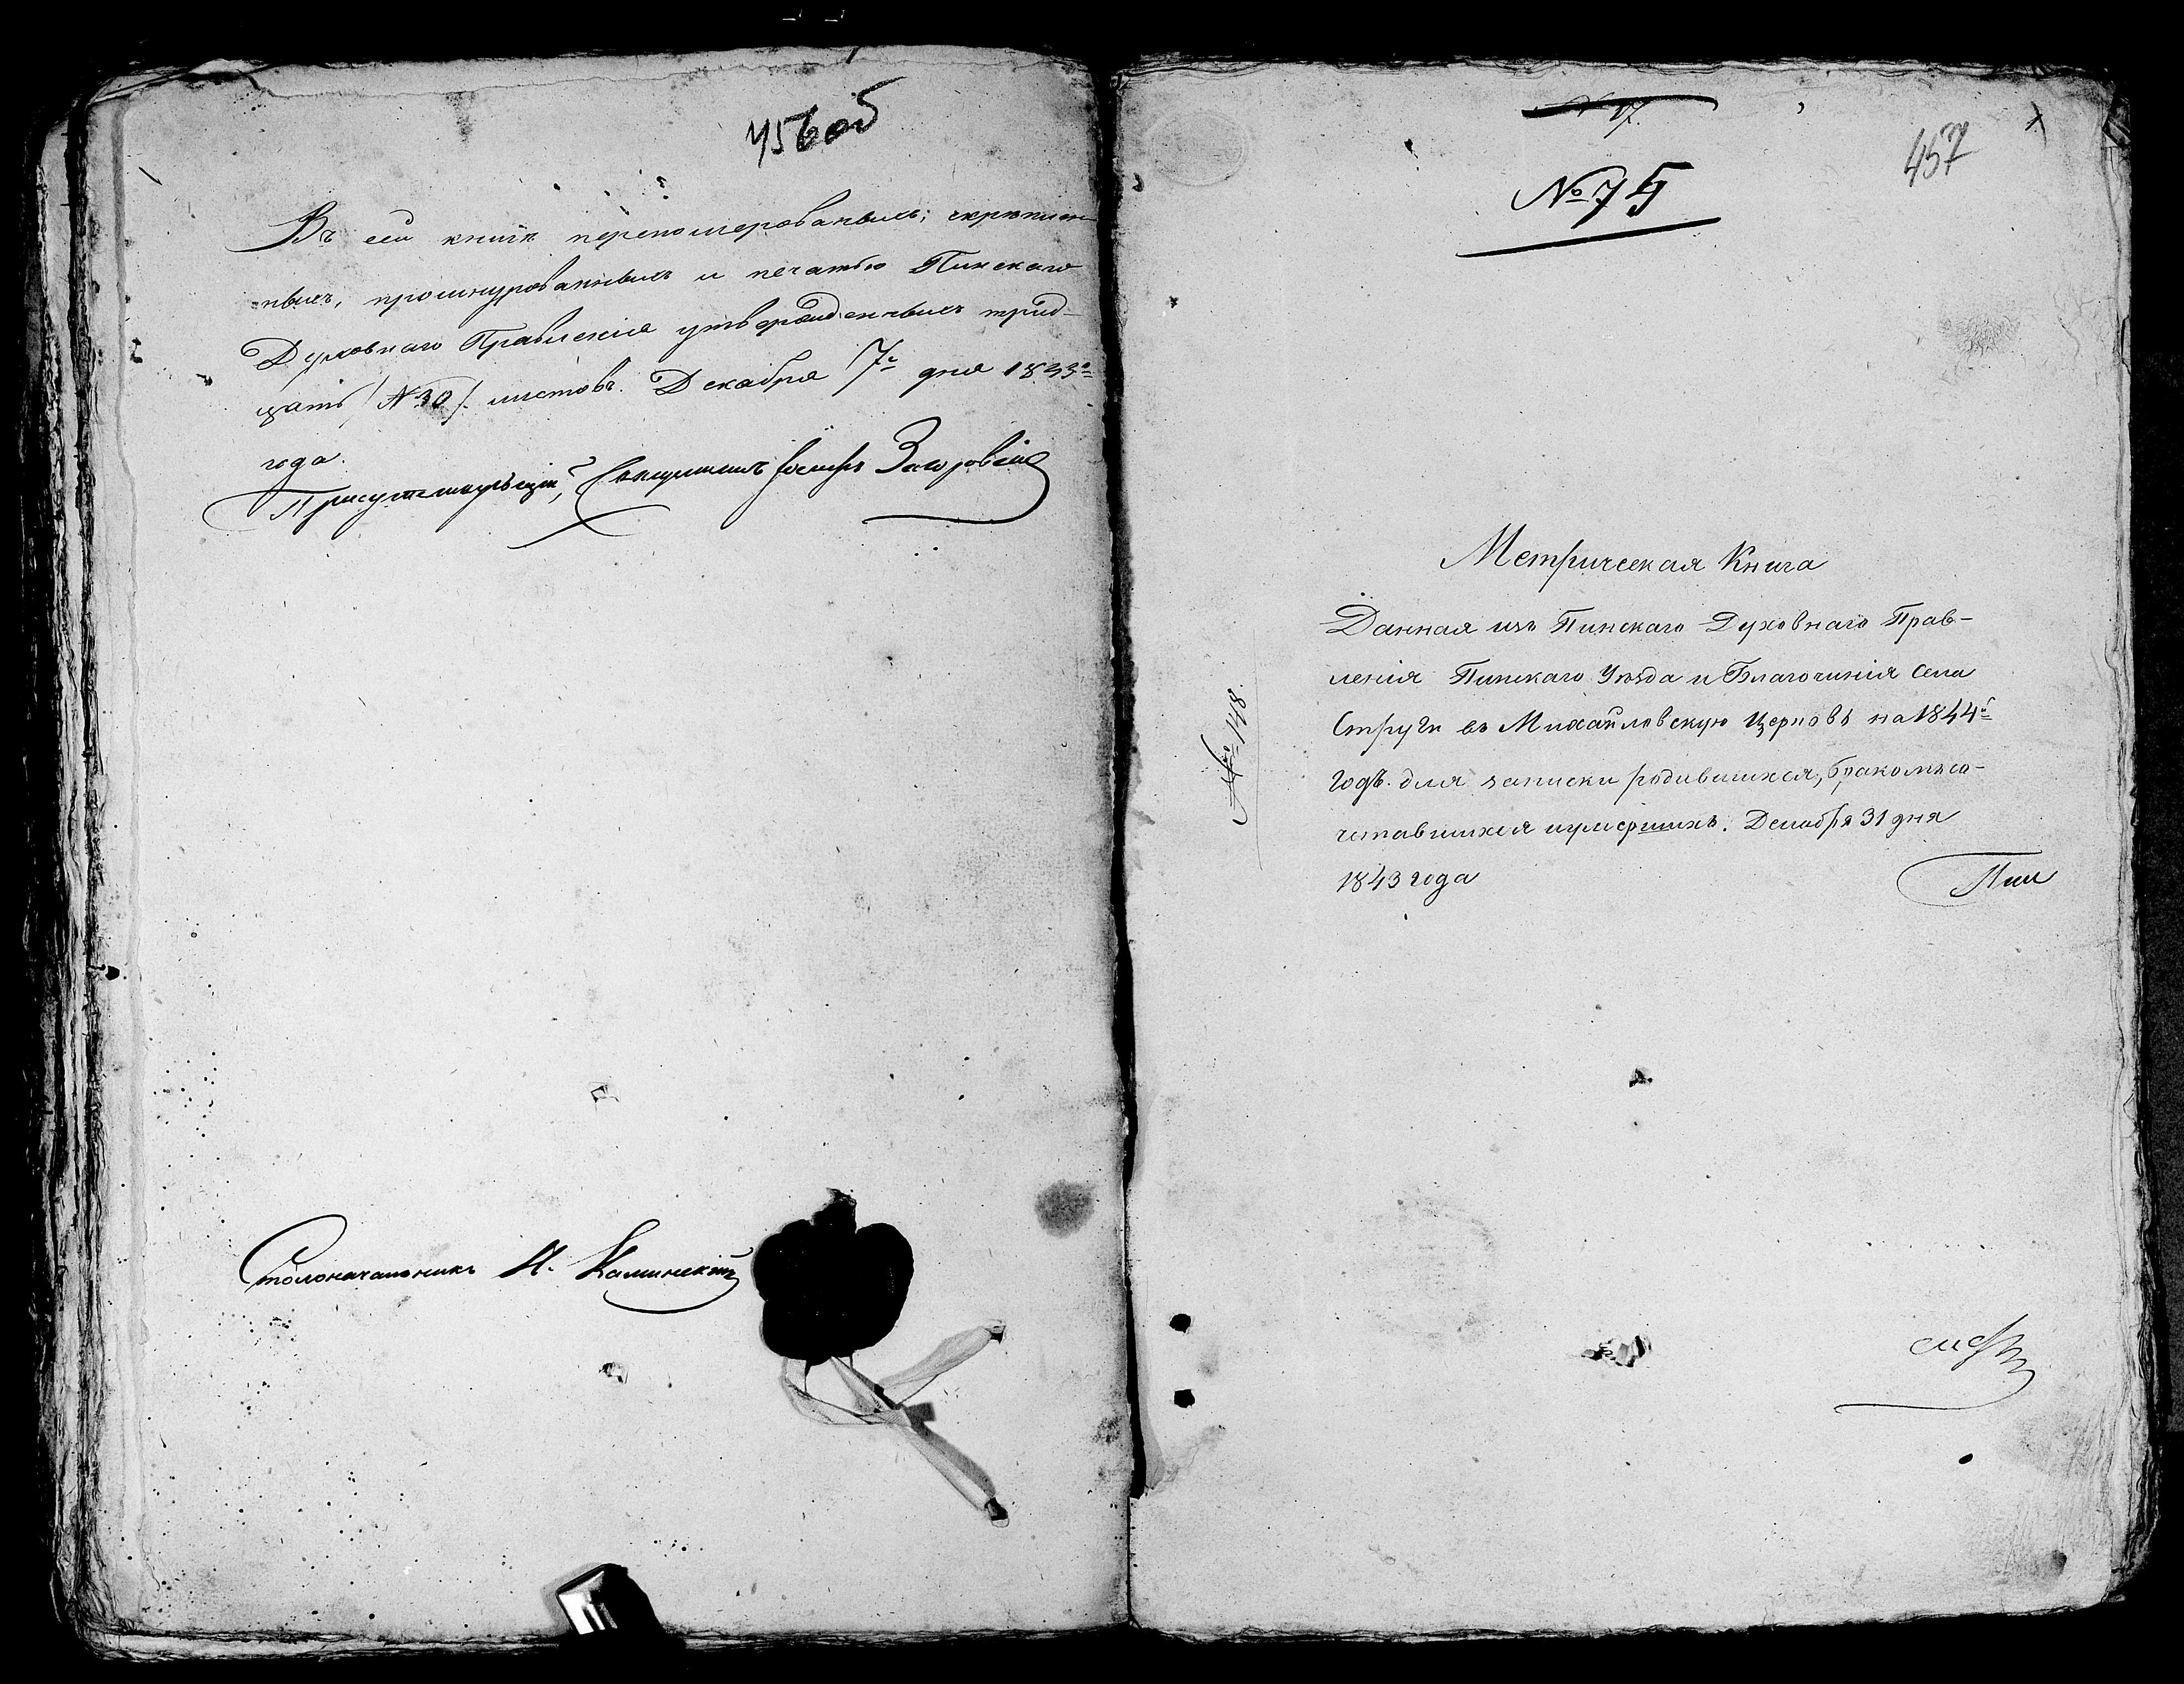 456об
Въ сей книгѣ перенумерованныхъ, скрѣплен-
ныхъ, прошнурованныхъ и печатью Пинскаго
Духовнаго Правленія утвержденныхъ трид-
цать /№30/. листовъ. Декабря 7го дня 1843го
года.
Присутствующій, Священникъ Іосифъ
Столоначальникъ А. Каминскій
17
№ 75
457
1
№ 148.
Метрическая Книга
Данная изъ Пинскаго Духовнаго Прав-
ленія Пинскаго Уѣзда и Благочинія села
Струги въ Михайловскую Церковь на 1844й
годъ. для записки родившихся, бракомъ со-
четавшихся и умершихъ. Декабря 31 дня
1843 года
Пин